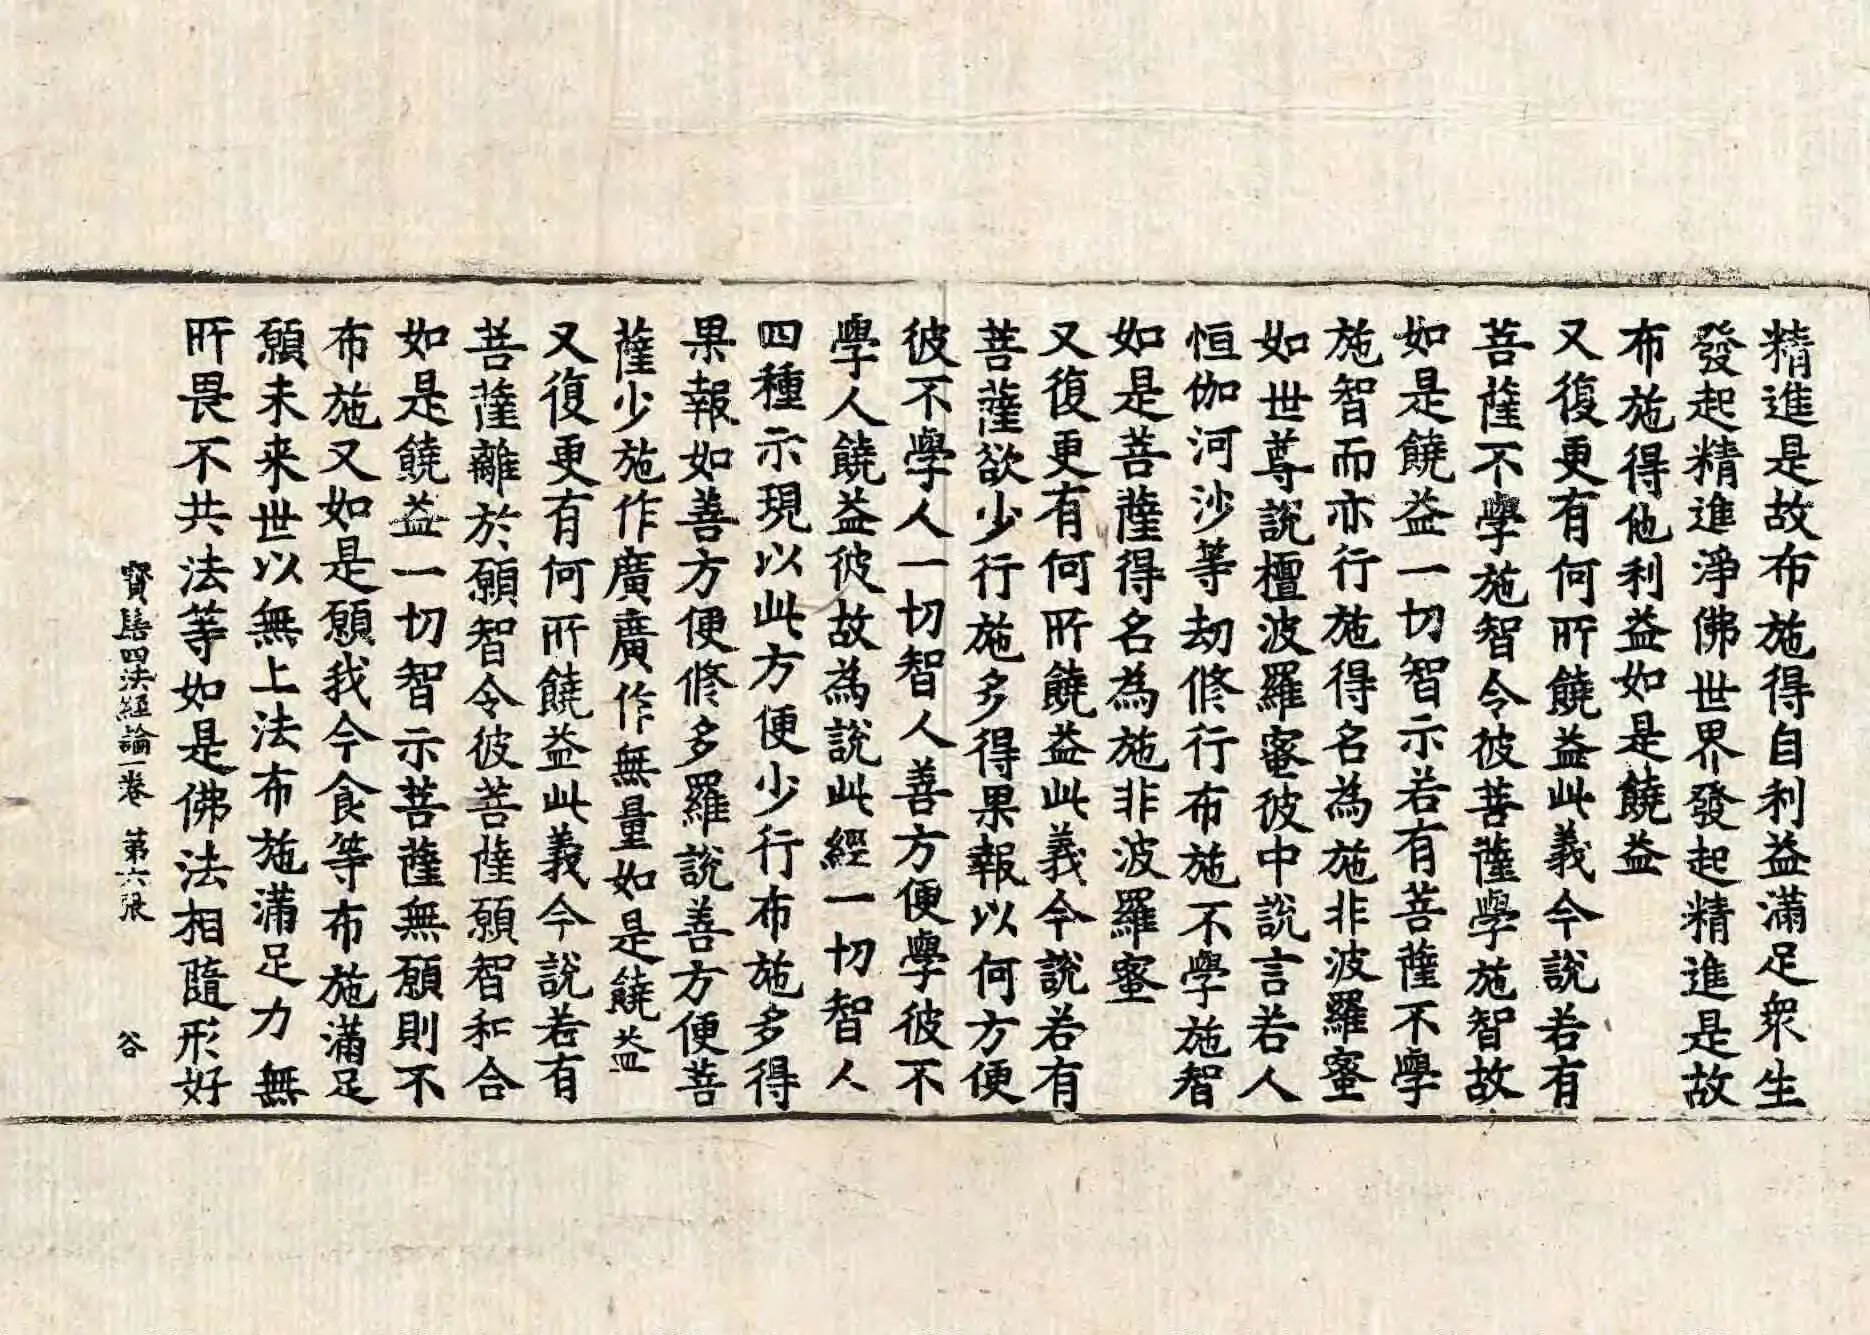 精進是故布施得自利益滿足衆生
發起精進淨佛世界發起精進是故
布施得他利益如是饒益
又復更有何所饒益此義今說若有
菩薩不學施智令彼菩薩學施智故
如是饒益一切智示若有菩薩不學
施智而亦行施得名為施非波羅蜜
如世尊說檀波羅蜜彼中說言若人
恒伽河沙等劫修行布施不學施智
如是菩薩得名為施非波羅蜜
又復更有何所饒益此義今說若有
菩薩欲少行施多得果報以何方便
彼不學人一切智人善方便學彼不
學人饒益彼故為說此經一切智人
四種示現以此方便少行布施多得
果報如善方便修多羅說善方便菩
薩少施作廣廣作無量如是饒益
又復更有何所饒益此義今說若有
菩薩離於願智令彼菩薩願智和合
如是饒益一切智示菩薩無願則不
布施又如是願我今食等布施滿足
願未来世以無上法布施滿足力無
所畏不共法等如是佛法相隨形好
寶髻四法經論一卷 第六張 谷